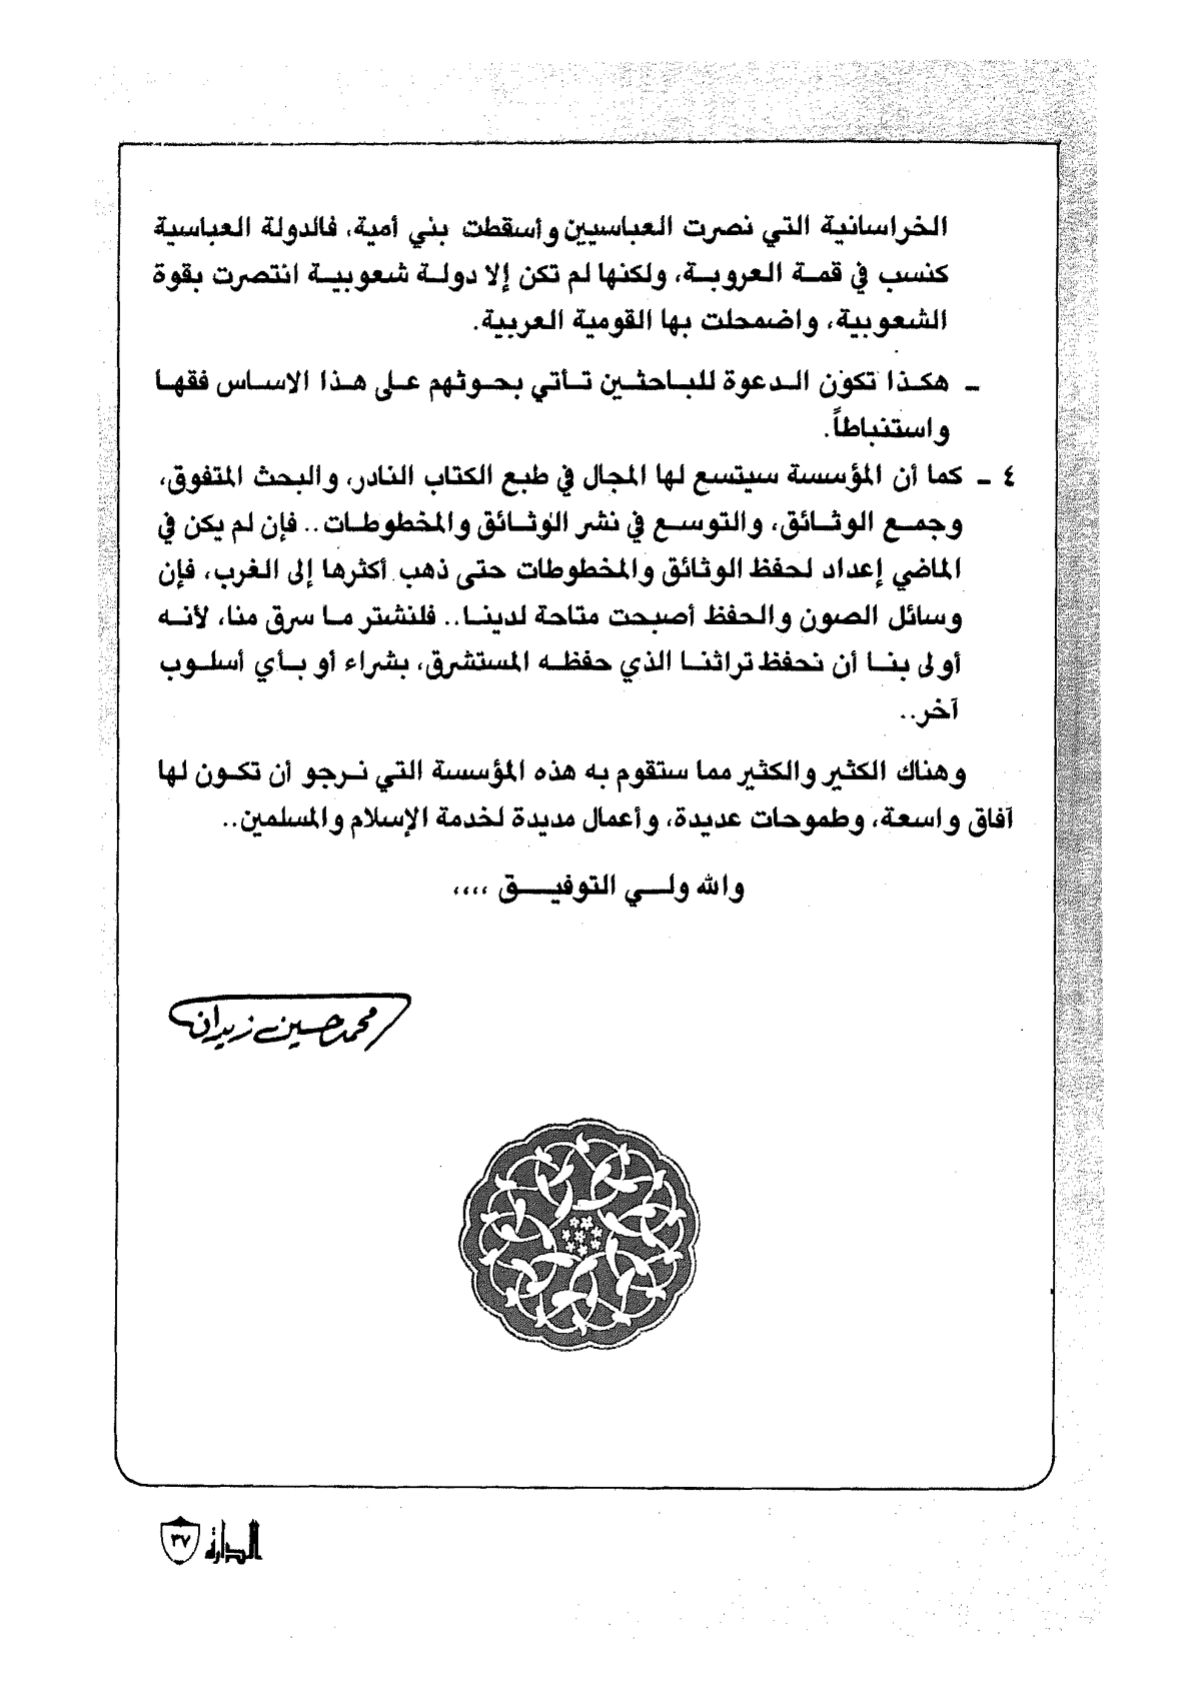 الخراسانية التي نصرت العباسيين وأسقطت بني أمية، فالدولة العباسية
كنسب في قمة العروبة، ولكنها لم تكن إلا دولة شعوبية انتصرت بقوة
الشعوبية، واضمحلت بها القومية العربية.
ـ هكذا تكون الدعوة للباحثين تأتي بحوثهم على هذا الاساس فقها
واستنباطاً.
٤ ـ كما أن المؤسسة سيتسع لها المجال في طبع الكتاب النادر، والبحث المتفوق،
وجمع الوثائق، والتوسع في نشر الوثائق والمخطوطات.. فإن لم يكن في
الماضي إعداد لحفظ الوثائق والمخطوطات حتى ذهب أكثرها إلى الغرب، فإن
وسائل الصون والحفظ أصبحت متاحة لدينا.. فلنشتر ما سرق منا، لأنه
أولى بنا أن نحفظ تراثنا الذي حفظه المستشرق، بشراء أو بأي أسلوب
آخر..
وهناك الكثير والكثير مما ستقوم به هذه المؤسسة التي نرجو أن تكون لها
آفاق واسعة، وطموحات عديدة، وأعمال مديدة لخدمة الإسلام والمسلمين..
والله ولي التوفيق ،،،،
محمد حسين زيدان
الدارة ٣٧